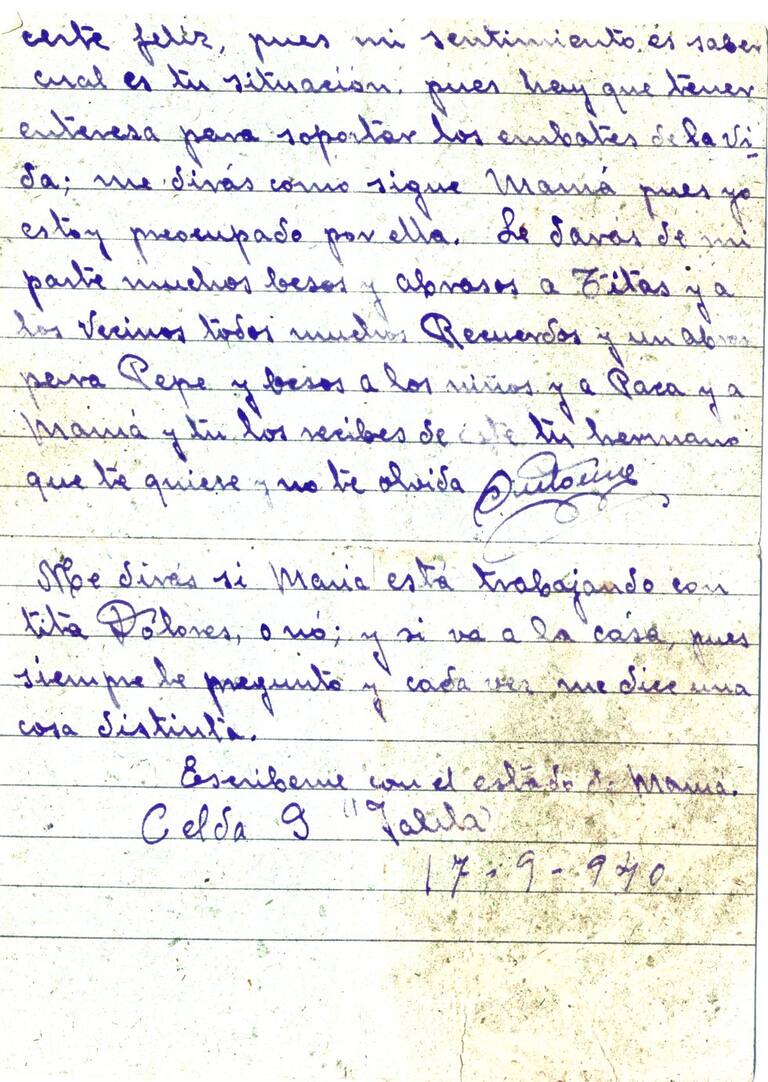 certe feliz, pues mi sentimiento es saber
cual es tu situación. pues hay que tener
enteresa para soportar los embates de la Vi-
da; me dirás como sigue Mamá pues yo
estoy preocupado por ella. Le darás de mi
parte muchos besos y abrasos a Titas y a
los Vecinos todos muchos Recuerdos y un abraso
para Pepe y besos a los niños y a Paca y a
Mamá y tu los recibes de este tu hermano
que te quiere y no te olvida Antonio
Me dirás si Maria está trabajando con
tita Dólores, o nó; y si va a la casa, pues
siempre le pregunto y cada vez me dice una
cosa distinta.
Escribeme con el estado de Mamá.
Celda 9
17-9-940